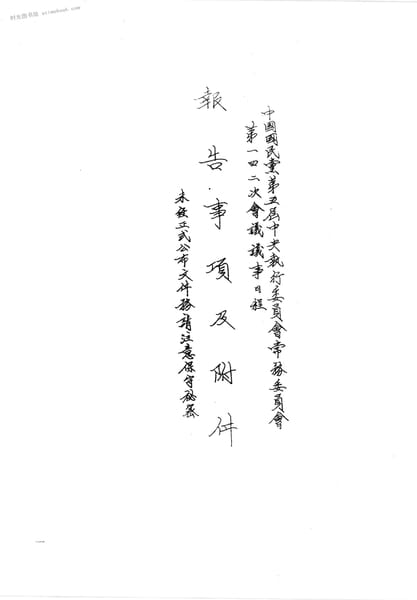 时光图书馆
中國國民黨第五屆中央執行委員會常務委員會
第一四二次會議議事日程
報告事項及附件
未經正式公布文件務請注意保守秘密
一